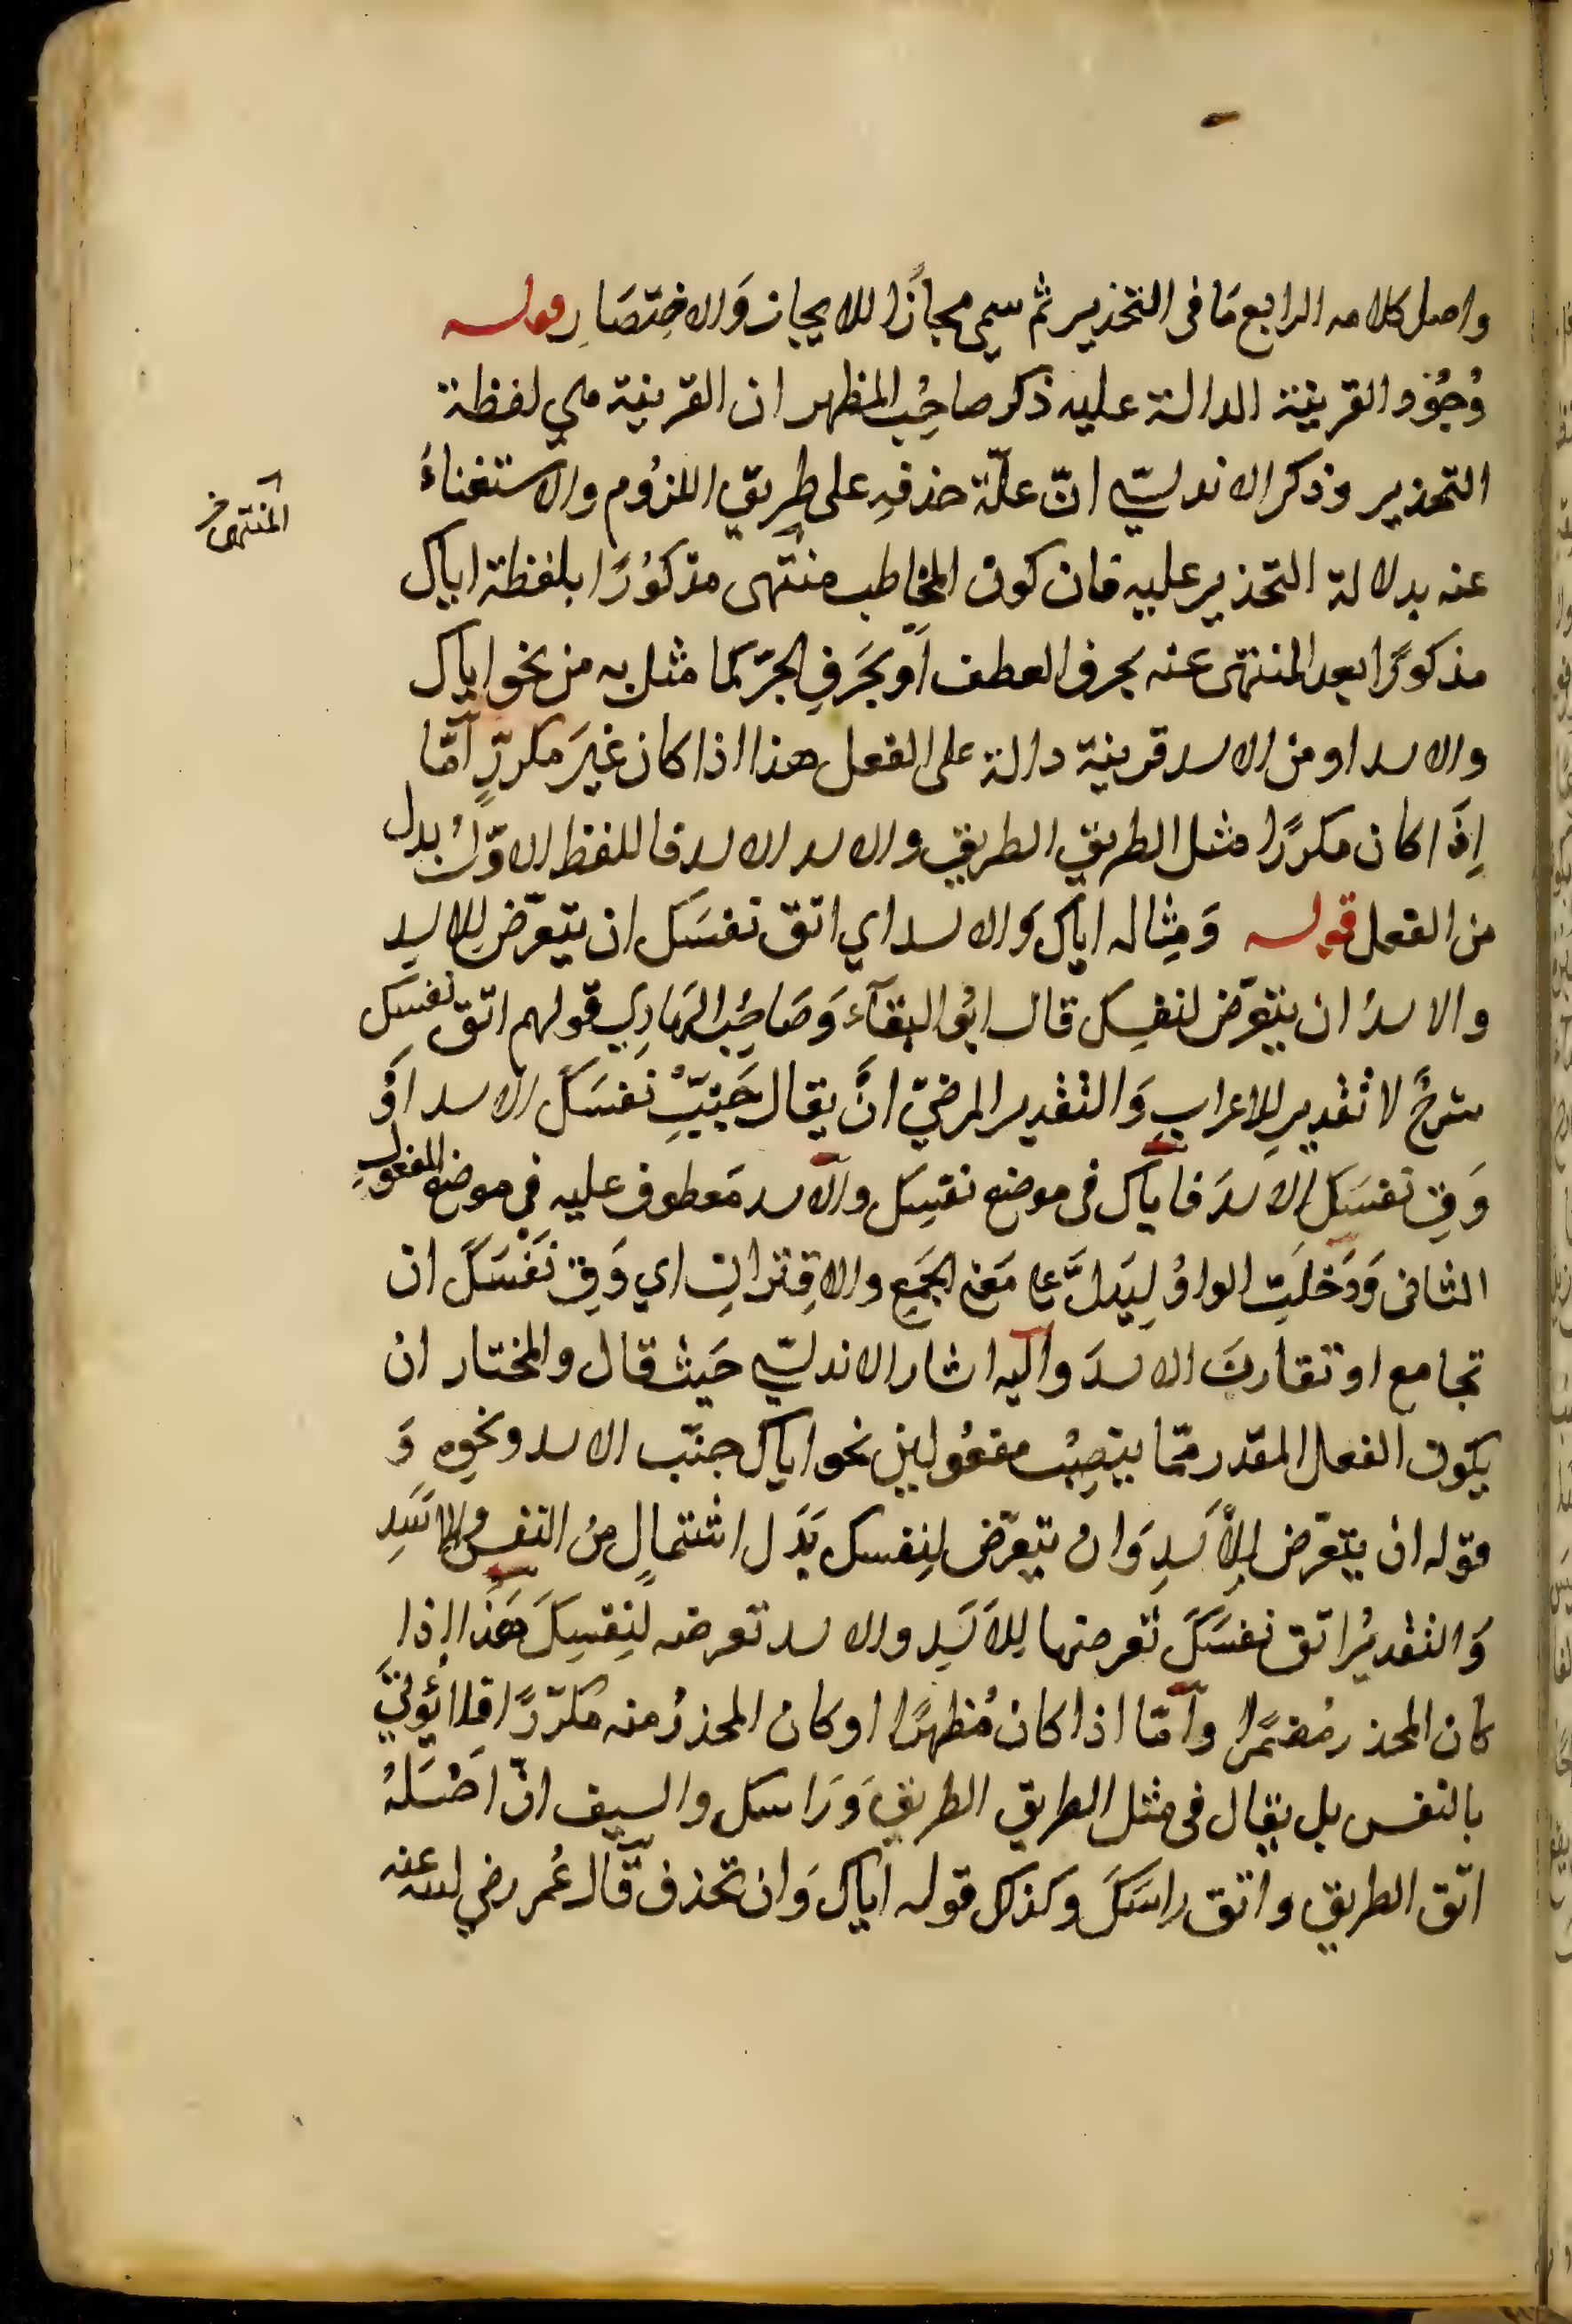 واصل كلامه الرابع مَا فى التحذير ثم سمي مجازًا للايجاز وَالاختِصَارِ قوله
وُجُوْد القرينة الدالة عليه ذكر صاحِبُ المظهر ان القرينة هي لفظة
التحذير وذكر الاندلسيّ انّ علّة حذفِهِ على طرِيقِ اللزُوم والاستغناءُ
المنتهى
عنه بدلالة التحذير عليه فان كون المخاطب منتهى مذكوُرًا بلفظة اياك
مذكورًا بعد المنتهى عنه بحرف العطف اَو بحَرفِ الجرّ كما مثل به من نحو اياك
والاسد او من الاسد قرينة دالة على الفعل هذا اذا كان غيرَ مكررٍ امّا
اِذَا كان مكررًا مثل الطريق الطريق والاسد الاسد فاللفظ الاوّلُ بدل
من الفعل قوله وَمِثاله اياك وَالاسد اي اتق نفسَكَ ان تتعرّض للاسدِ
والاسدُ ان يتعرّض لنفسِك قال ابُو البقآء وَصَاحِبُ الهَادِي قولهم اتق نفسك
شرحٌ لا تقدير للاعرابِ وَالتقدير المرضيّ انَّ يقال جَنِّبْ نفسَكَ الاسد اَوْ
وَقِ نفسَكَ الاسدَ فاياك فى موضع نفسِك والاسد مَعطوف عليه فى موضع المفعولِ
الثانى وَدَخلَتِ الواوُ لِيَدلَّ على مَعنى الجَمِع والاقِترانِ اي وَقِ نَفْسَكَ ان
تجامع او تقاربَ الاسدَ واليه اشار الاندلسيّ حَيث قال والمختار ان
يكون الفعل المقدر ممّا ينصِبُ مفعُولين نحو اياك جنّب الاسد ونحوِهِ وَ
قوله ان يتعّرض للأَسَدِ وَان يتعرّض لِنفسك بَدَل اشتمالٍ منُ النفس والاسَدِ
وَالتقديرُ اتق نفسَكَ تعرضها لِلاَسَدِ والاسد تعرضه لِنفسِكَ هَذَا اِذا
كان المحذر مُضمَرًا وامّا اذا كان مُظهرًا او كان المحذرُ منه مكرّرًا فلا يُؤتىَ
بالنفس بل يقال فى مثل الطريق الطريقَ وَرَاسك والسيف انّ اصْلَهُ
اتّق الطريق واتق راسَكَ وكذلك قوله اياك وَان تحذف قال عُمر رضي الله عنه